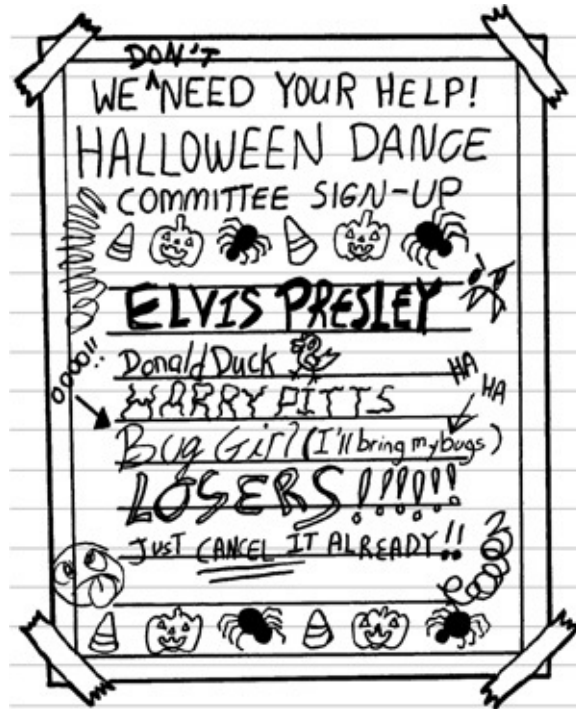 DON'T
WE ^ NEED YOUR HELP!
HALLOWEEN DANCE
COMMITTEE SIGN-UP
ELVIS PRESLEY
Donald Duck
HA
HA
HARRY PITTS
OOOO!!
Bug Girl (I'll bring my bugs)
LOSERS!!!!!!
JUST CANCEL IT ALREADY!!